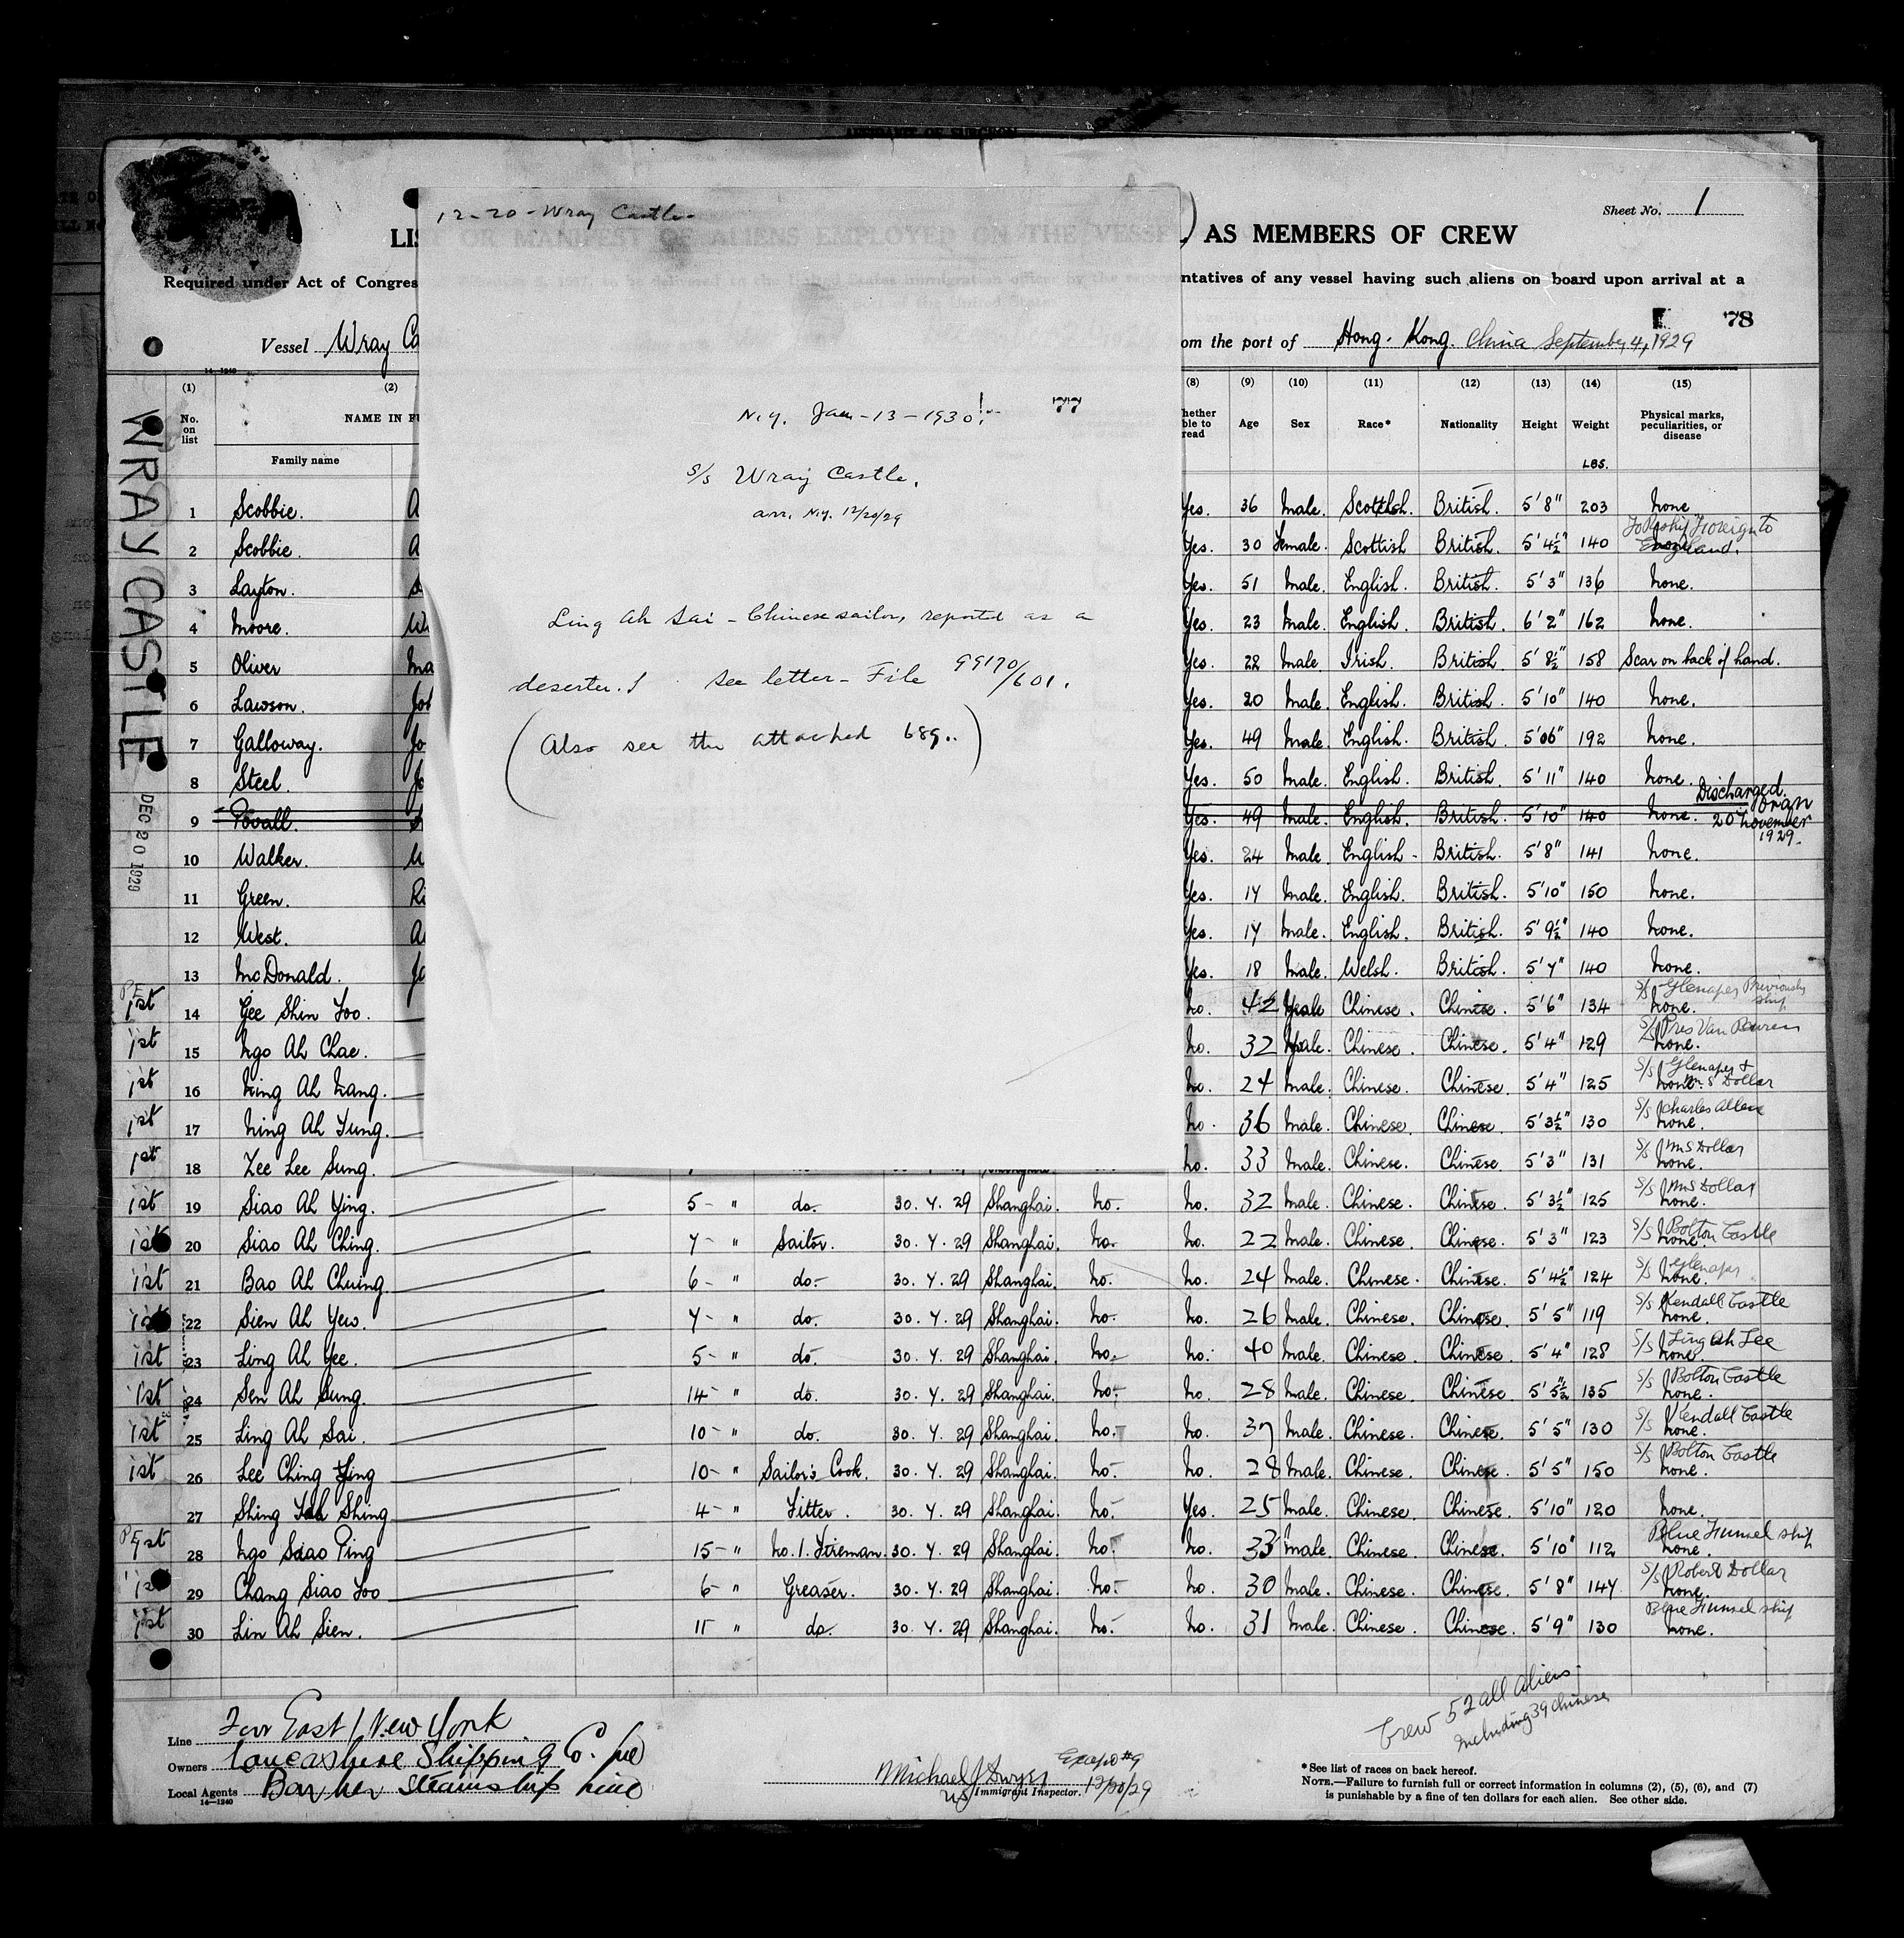 AFFIDAVIT OF SURGEON
Sheet No. 1
12-20-Wray Castle-
LIST OR MANIFEST OF ALIENS EMPLOYED ON THE VESSEL AS MEMBERS OF CREW
Required under Act of Congres
ntatives of any vessel having such aliens on board upon arrival at a
78
Vessel Wray Ca
om the port of Hong. Kong. China September 4, 1929
WRAY CASTLE
DEC 20 1929
N.Y. Jan-13-1930!-
77
S/S Wray Castle.
arr. N.Y. 12/20/29
Ling Ah Sai - Chinese sailor, reported as a
deserter. See letter - File 99170/601.
(Also see the attached 689..)
14-1240
(1) (2) (8) (9) (10) (11) (12) (13) (14) (15)
No. on list NAME IN FU hether ble to read Age Sex Race* Nationality Height Weight Physical marks, peculiarities, or disease
Family name LBS.
1 Scobbie. A Yes. 36 Male. Scottish. British. 5'8" 203 None
2 Scobbie. A Yes. 30 Female. Scottish British. 5'4½" 140 To Reship Foreign to England.
3 Layton. Yes. 51 Male. English. British. 5'3" 136 None.
4 Moore. Wi Yes. 23 Male. English. British. 6'2" 162 None.
5 Oliver Ma Yes. 22 Male. Irish. British. 5'8½" 158 Scar on back of hand.
6 Lawson. Joh Yes. 20 Male. English. British. 5'10" 140 None.
7 Galloway. Jo Yes. 49 Male. English. British. 5'06" 192 None.
8 Steel. Jo Yes. 50 Male. English. British. 5'11" 140 None.
9 Povall. Yes. 49 Male. English. British. 5'10" 140 None. Discharged Oran 20 November 1929.
10 Walker. Yes. 24 Male. English- British. 5'8" 141 None.
11 Green. Ri Yes. 17 Male. English. British. 5'10" 150 None.
12 West. A Yes. 17 Male. English. British. 5'9½" 140 None.
13 McDonald. Yes. 18 Male. Welsh. British. 5'7" 140 None.
PE 1st 14 Gee Shin Foo. No. 42 Male Chinese. Chinese. 5'6" 134 S/S Glenaper Previously ship None.
1st 15 Ngo Ah Chae. No. 32 Male. Chinese. Chinese. 5'4" 129 S/S Pres Van Buren None.
1st 16 Ning Ah Nang. No. 24 Male. Chinese. Chinese. 5'4" 125 S/S Glenaper + M.S Dollar None.
1st 17 Ning Ah Tung. No. 36 Male. Chinese. Chinese. 5'3½" 130 S/S Charles Allen None.
1st 18 Zee Lee Sung. No. 33 Male. Chinese. Chinese. 5'3" 131 S/S MS Dollar None.
1st 19 Siao Ah Ying. 5- " do. 30. 7. 29 Shanghai. No. No. 32 Male. Chinese. Chinese. 5'3½" 125 S/S MS Dollar None.
1st 20 Siao Ah Ching. 7- " Sailor. 30. 7. 29 Shanghai. No. No. 22 Male. Chinese. Chinese. 5'3" 123 S/S Bolton Castle None.
1st 21 Bao Ah Chuing. 6- " do- 30. 7. 29 Shanghai. No. No. 24 Male. Chinese. Chinese. 5'4½" 124 S/S Glenaper None.
1st 22 Sien Ah Yew. 7- " do. 30. 7. 29 Shanghai. No. No. 26 Male. Chinese. Chinese. 5'5" 119 S/S Kendall Castle None.
1st 23 Ling Ah Yee. 5- " do. 30. 7. 29 Shanghai. No. No. 40 Male. Chinese. Chinese. 5'4" 128 S/S Ling Ah Lee None
1st 24 Sen Ah Sung. 14- " do. 30. 7. 29 Shanghai. No. No. 28 Male. Chinese. Chinese. 5'5½" 135 S/S Bolton Castle None.
1st 25 Ling Ah Sai. 10- " do. 30. 7. 29 Shanghai. No. No. 37 Male. Chinese. Chinese. 5'5" 130 S/S Kendall Castle None.
1st 26 Lee Ching Ying 10- " Sailor's Cook. 30. 7. 29 Shanghai. No. No. 28 Male. Chinese. Chinese. 5'5" 150 S/S Bolton Castle None.
27 Shing Yah Shing 4- " Fitter. 30. 7. 29 Shanghai. No. Yes. 25 Male. Chinese. Chinese. 5'10" 120 None.
PE 1st 28 Ngo Siao Ping 15- " No. 1. Fireman. 30. 7. 29 Shanghai. No. No. 33 Male. Chinese. Chinese. 5'10" 112 Blue Funnel Ship None.
1st 29 Chang Siao Foo 6- " Greaser. 30. 7. 29 Shanghai. No. No. 30 Male. Chinese. Chinese. 5'8" 147 S/S Robert Dollar None.
1st 30 Lin Ah Sien. 11 " do. 30. 7. 29 Shanghai. No. No. 31 Male. Chinese. Chinese. 5'9" 130 Blue Funnel ship None.
Crew 52 all Aliens
Including 39 Chinese
Line Far East / New York
Owners Lancashire Shipping Co. Ltd
Local Agents Barber Steamship Line
14-1240
Michael J Dwyer
US Immigrant Inspector. 12/20/29
*See list of races on back hereof.
NOTE.—Failure to furnish full or correct information in columns (2), (5), (6), and (7)
is punishable by a fine of ten dollars for each alien. See other side.